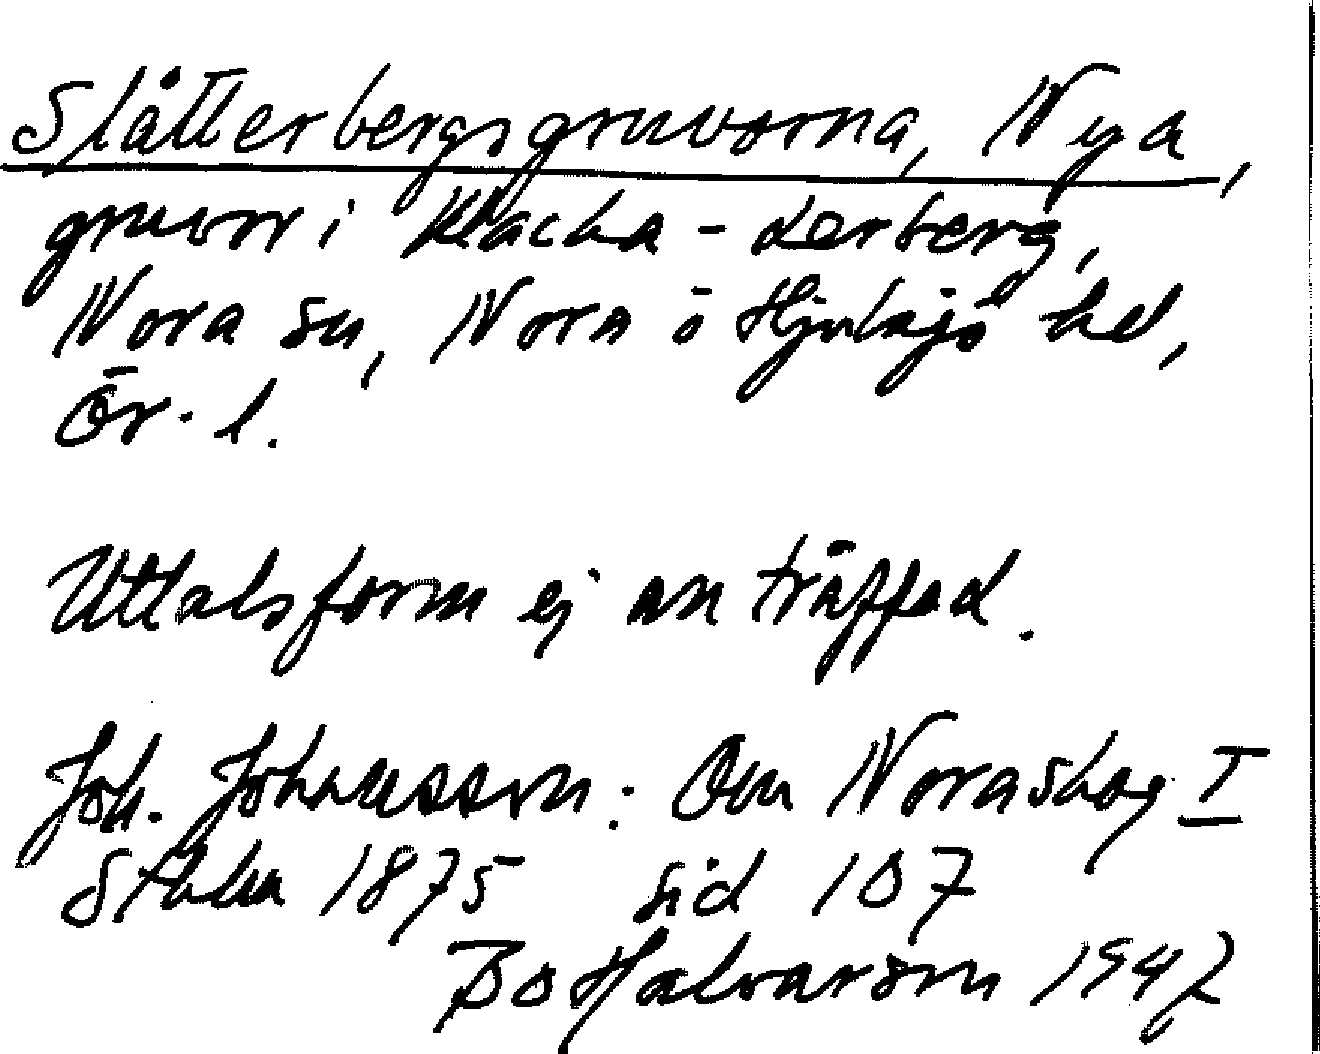 Slåtterbergsgruvorna, Nya,
gruvor i Klacka-Lerberg,
Nora sn, Nora o Hjulsjö hd,
Ör. l.
Uttalsform ej anträffad.
Joh. Johansson: Om Noraskog I
Sthlm 1875 sid 107
Bo Halvarson 1947